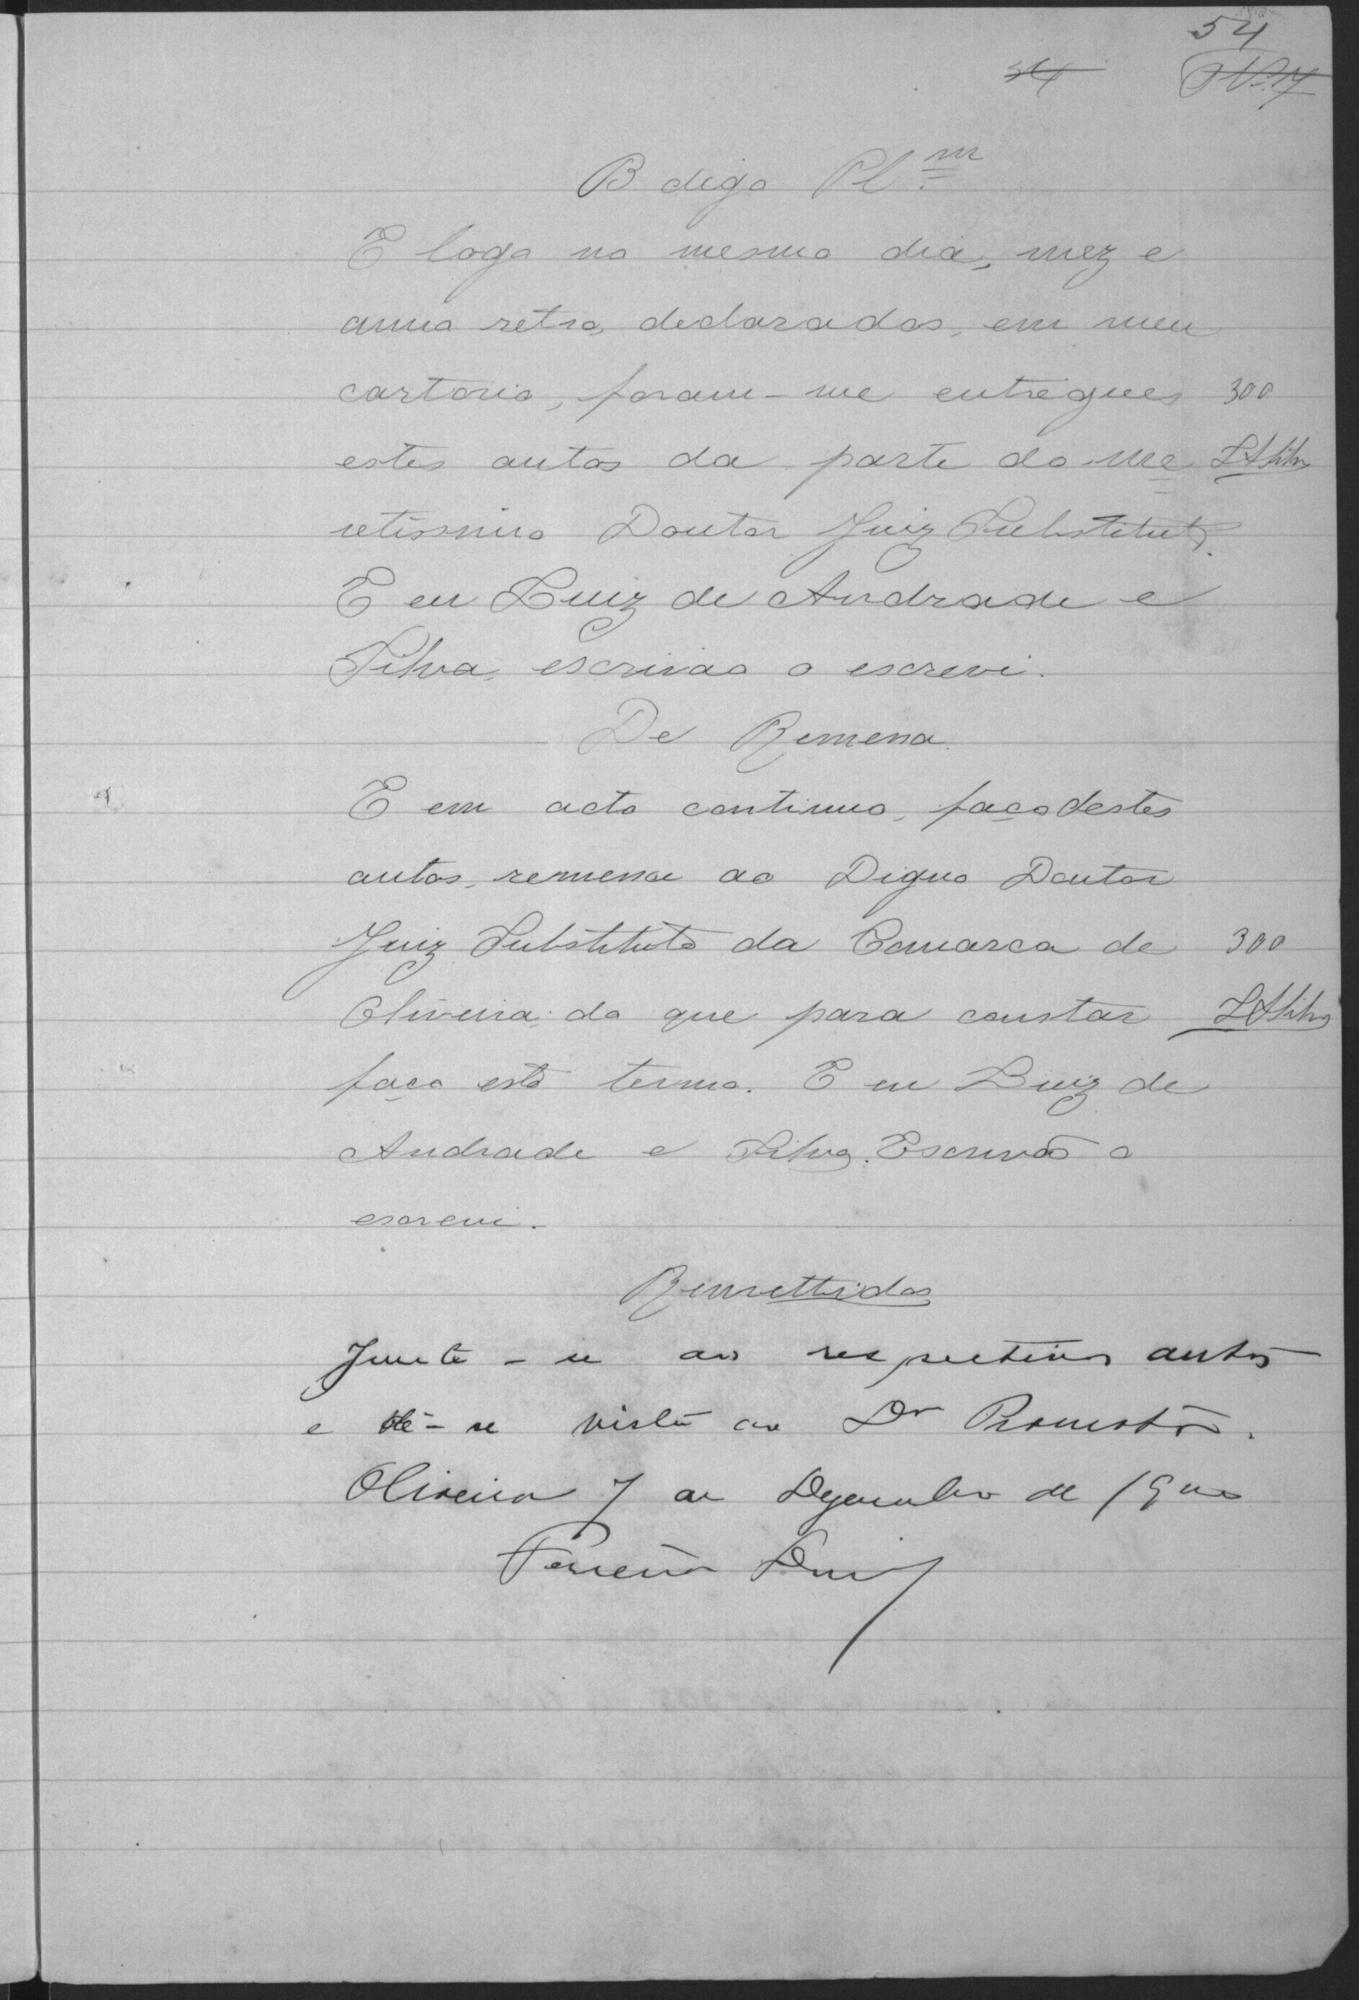 54
B digo Pl.m
E logo no mesmo dia, mez e
anno retro declarados, em meu
cartorio, foram-me entregues 300
estes autos da parte do me LASilva
retissimo Doutor Juiz Substituto.
E eu Luiz de Andrade e
Silva, escrivão o escrevi.
De Remessa.
E em acto continuo, faço destes
autos, remessa ao Digno Doutor
Juiz Substituto da Comarca de 300
Oliveira do que para constar LASilva
faço este termo. E eu Luiz de
Andrade e Silva. Escrivão o
escrevi.
Remettidos
Junte-se aos respectivos autos
e dê-se vista ao Dr Promotor.
Oliveira 7 de Dezembro de 1900
Ferreira Diniz